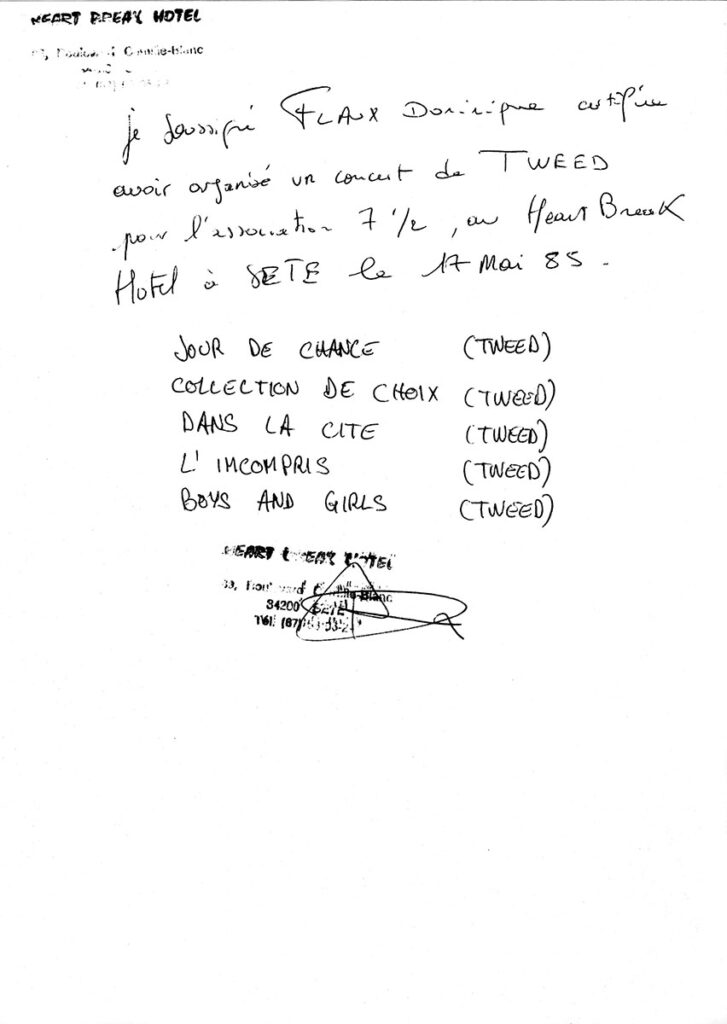 HEART BREAK HOTEL
Boulevard Camille-Blanc
je soussigné FLAUX Dominique certifie
avoir organisé un concert de TWEED
pour l'association 7 1/2, au Heart Break
Hotel à SETE le 17 Mai 85.
JOUR DE CHANCE (TWEED)
COLLECTION DE CHOIX (TWEED)
DANS LA CITE (TWEED)
L' IMCOMPRIS (TWEED)
BOYS AND GIRLS (TWEED)
HEART BREAK HOTEL
Boulevard Camille-Blanc
34200 SETE
Tél. (67)